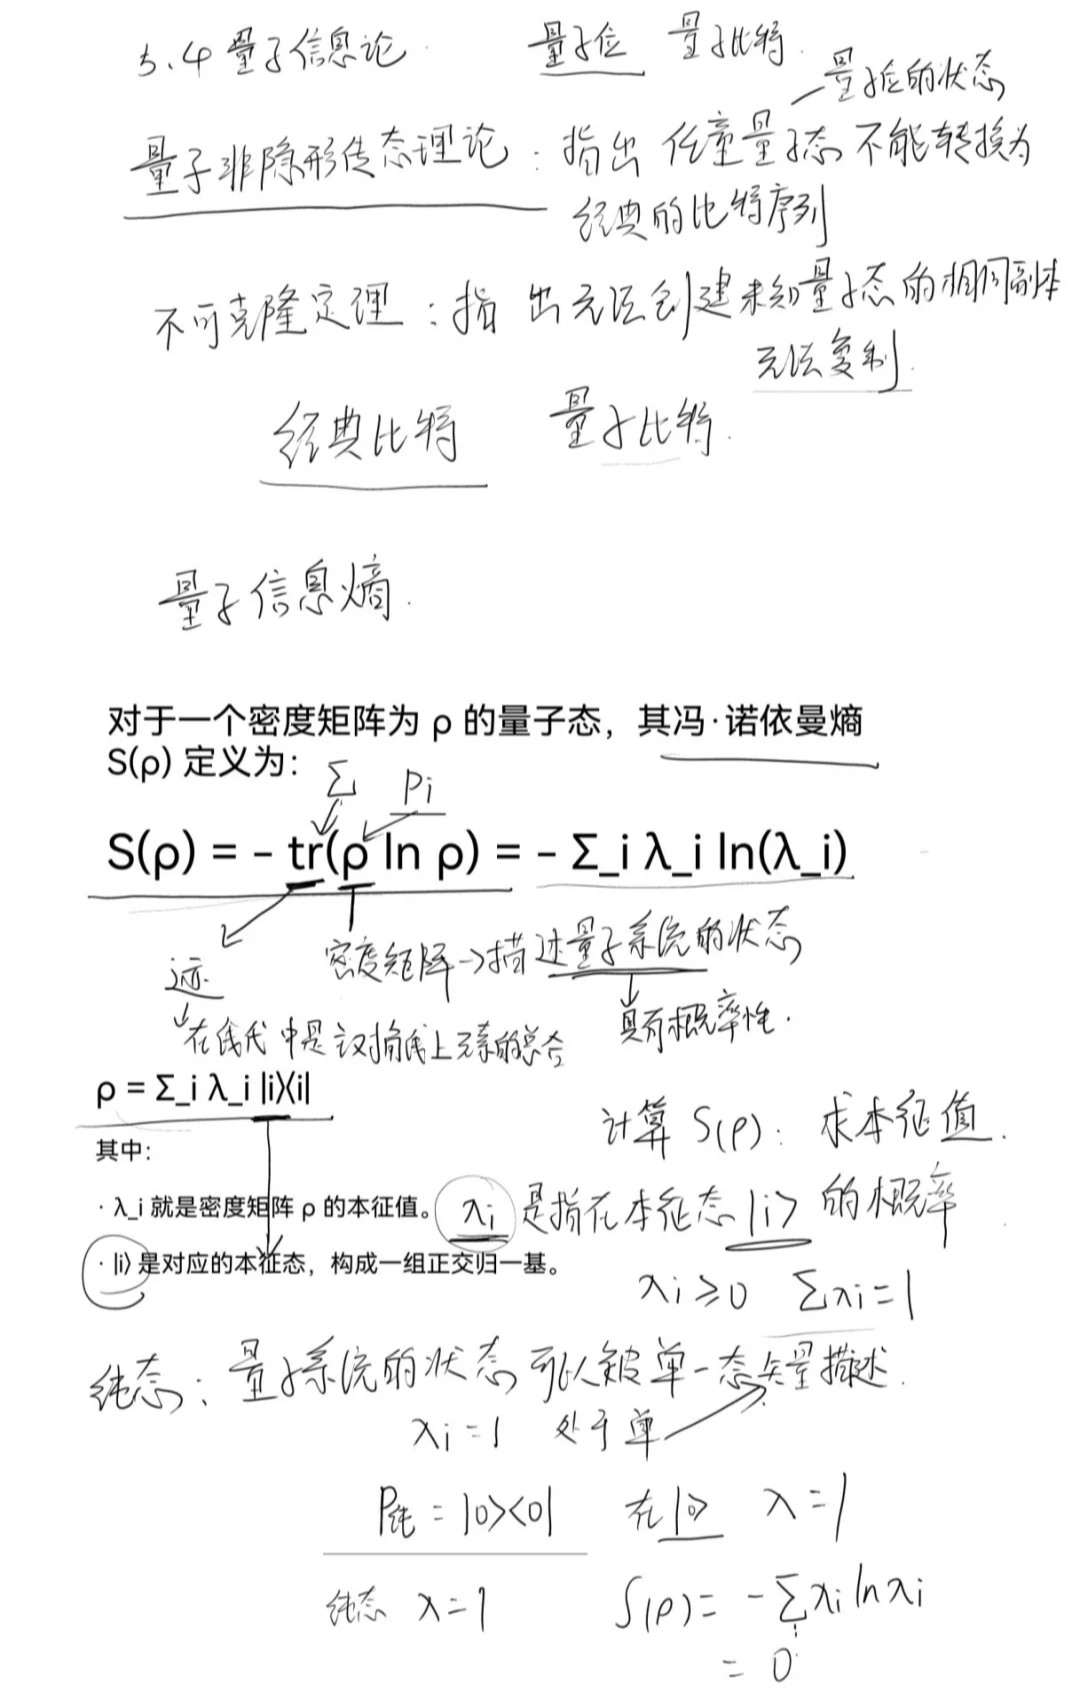 5.4 量子信息论 量子位 量子比特
量子位的状态
量子非隐形传态理论：指出 任意量子态 不能转换为
经典的比特序列
不可克隆定理：指出无法创建未知量子态的相同副本
无法复制
经典比特 量子比特
量子信息熵
对于一个密度矩阵为 ρ 的量子态，其冯·诺依曼熵
S(ρ) 定义为：
Σ Pi
S(ρ) = − tr(ρ ln ρ) = − Σ_i λ_i ln(λ_i)
密度矩阵→描述量子系统的状态
迹
具有概率性.
在线代中是主对角线上元素的总合
ρ = Σ_i λ_i |i⟩⟨i|
计算 S(ρ)：求本征值.
其中：
· λ_i 就是密度矩阵 ρ 的本征值。
λi 是指在本征态 |i> 的概率
· |i⟩ 是对应的本征态，构成一组正交归一基。
λi ≥ 0 Σλi = 1
纯态：量子系统的状态可以被单一态矢量描述.
λi = 1 处于单
ρ纯 = |0><0| 在|0> λ = 1
纯态 λ = 1 S(ρ) = -Σλi ln λi
i
= 0